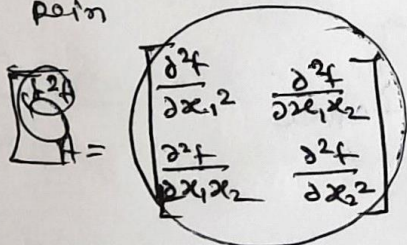 poin
A = [ ∂²f/∂x₁² ∂²f/∂x₁x₂
∂²f/∂x₁x₂ ∂²f/∂x₂² ]